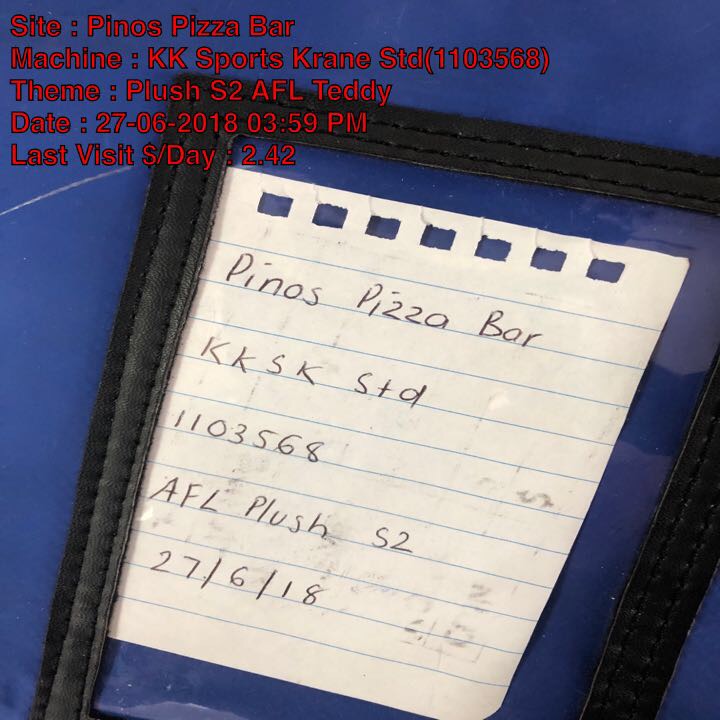 Site : Pinos Pizza Bar
Machine : KK Sports Krane Std(1103568)
Theme : Plush S2 AFL Teddy
Date : 27-06-2018 03:59 PM
Last Visit $/Day : 2.42
Pinos Pizza Bar
KKSK Std
1103568
AFL Plush S2
27/6/18